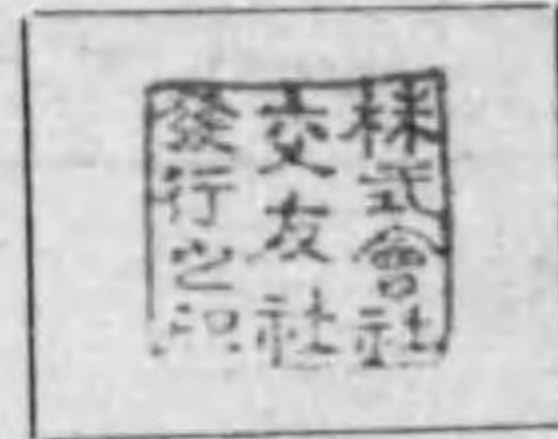 株式會社
交友社
發行之印